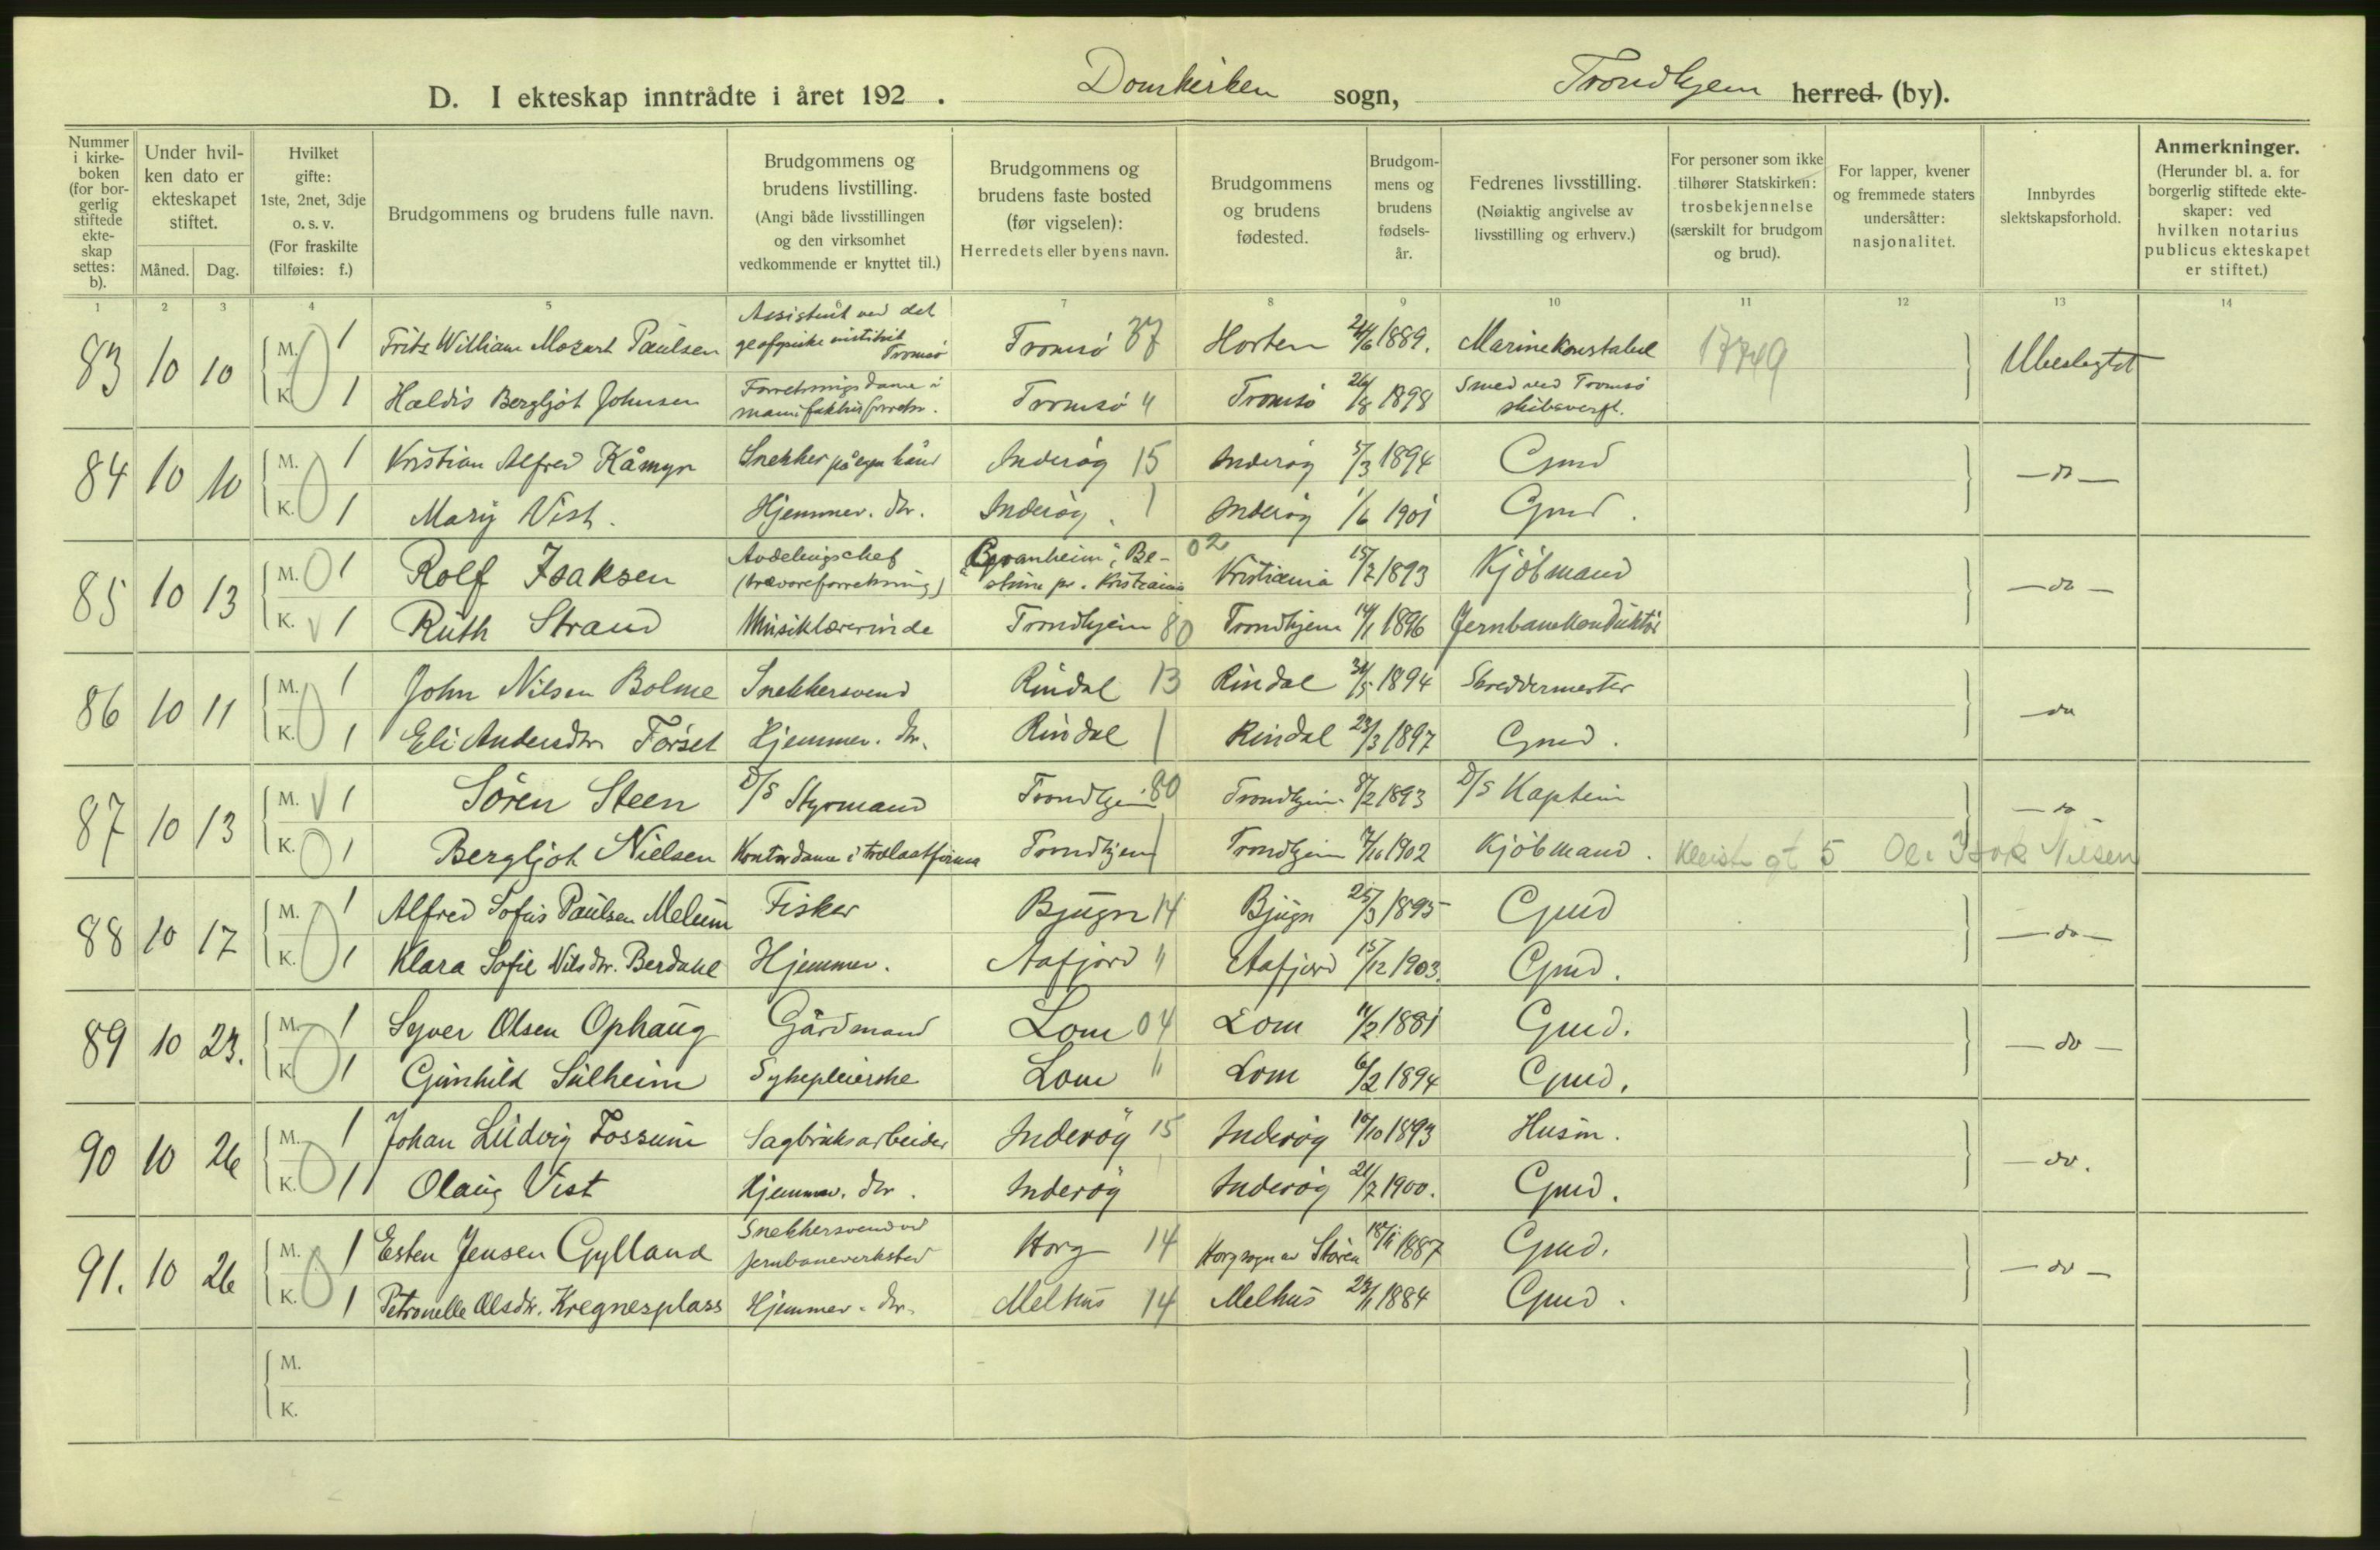 D. I ekteskap inntrådte i året 192 . Domkirken sogn, Trondhjem herred (by).
Nummer i kirke- boken (for bor- gerlig stiftede ekte- skap settes: b).
Under hvil- ken dato er ekteskapet stiftet.
Måned. Dag.
Hvilket gifte: 1ste, 2net, 3dje o. s. v. (For fraskilte tilføies: f.)
Brudgommens og brudens fulle navn.
Brudgommens og brudens livstilling. (Angi både livsstillingen og den virksomhet vedkommende er knyttet til.)
Brudgommens og brudens faste bosted (før vigselen): Herredets eller byens navn.
Brudgommens og brudens fødested.
Brudgom- mens og brudens fødsels- år.
Fedrenes livsstilling. (Nøiaktig angivelse av livsstilling og erhverv.)
For personer som ikke tilhører Statskirken: trosbekjennelse (særskilt for brudgom og brud).
For lapper, kvener og fremmede staters undersåtter: nasjonalitet.
Innbyrdes slektskapsforhold.
Anmerkninger. (Herunder bl. a. for borgerlig stiftede ekte- skaper: ved hvilken notarius publicus ekteskapet er stiftet.)
1 2 3 4 5 6 7 8 9 10 11 12 13 14
83 10 10 M. 1 Frits William Mozart Paulsen Assistent ved det geofysiske institut Tromsø Tromsø 37 Horten 24/6 1889. Marinekonstabel 17749 Ubeslegtet
K. 1 Haldis Bergljot Johnsen Forretningsdame i manufakturforretn. Tromsø " Tromsø 26/8 1898 Smed ved Tromsø skibsverft.
84 10 10 M. 1 Kristian Alfred Kåmyr Snekker på egen hånd Inderøy 15 Inderøy 5/3 1894 Gmd — do —
K. 1 Mary Vist. Hjemmev. dtr. Inderøy. 1 Inderøy 1/6 1901 Gmd.
85 10 13 M. 1 Rolf Isaksen Avdelingschef (trævareforretning) Bestum pr. Kristiania 02 Kristiania 15/7 1893 Kjøbmand — do —
K. 1 Ruth Strand Musiklærerinde Trondhjem 80 Trondhjem 14/1 1896 Jernbanekonduktør
86 10 11 M. 1 John Nilsen Bolme Snekkersvend Rindal 13 Rindal 31/5 1894 Skreddermester — do
K. 1 Eli Andersdtr. Førset Hjemmev. dtr. Rindal 1 Rindal 23/3 1897 Gmd.
87 10 13 M. 1 Søren Steen D/S Styrmand Trondhjem 80 Trondhjem 8/2 1893 D/S Kaptein — do —
K. 1 Bergljot Nielsen Kontordame i trælastfirma Trondhjem 1 Trondhjem 7/10 1902 Kjøbmand. gt 5 Nilsen
88 10 17 M. 1 Alfred Sofus Paulsen Melum Fisker Bjugn 14 Bjugn 25/3 1895 Gmd — do —
K. 1 Klara Sofie Nilsdtr. Berdahl Hjemmev. Aafjord " Aafjord 15/12 1903. Gmd.
89 10 23. M. 1 Syver Olsen Ophaug Gårdmand Lom 04 Lom 11/2 1881 Gmd. — do —
K. 1 Gunhild Sulheim Sykepleierske Lom " Lom 6/2 1894 Gmd.
90 10 26 M. 1 Johan Ludvig Fossum Sagbruksarbeider Inderøy 15 Inderøy 10/10 1893 Husm. — do.
K. 1 Olaug Vist Hjemmev. dtr. Inderøy Inderøy 21/7 1900. Gmd.
91. 10 26 M. 1 Esten Jensen Gylland Snekkersvend ved jernbaneverksted Horg 14 Horg sogn av Støren 18/11 1887 Gmd. — do —
K. 1 Petronelle Olsdtr. Kregnesplass Hjemmev. dtr. Melhus 14 Melhus 23/11 1884 Gmd.
M.
K.